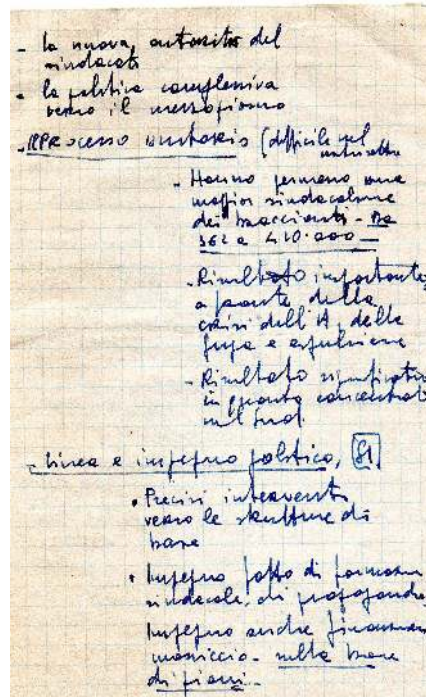 - la nuova, autorità del
sindacato
- la politica complessiva
verso il mezzogiorno
- Processo unitario (difficile nel
- Hanno permesso una
maggior sindacalizne
dei braccianti - Da
362 a 410.000 -
- Risultato importante,
a fronte della
crisi dell'A, della
fuga e espulsione
- Risultato significativo
in quanto concentrati
nel Sud.
- Linea e impegno politico, 81.
• Precisi interventi
verso le strutture di
base
• Impegno fatto di formazne
sindacale, di propaganda,
Impegno anche finanziario
massiccio - sulla base
di piani -